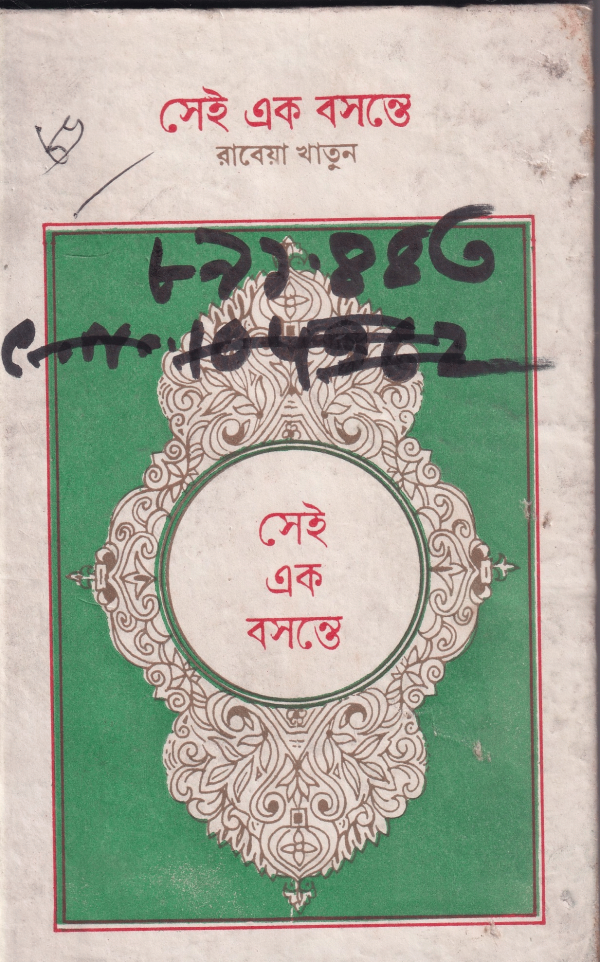 সেই এক বসন্তে
রাবেয়া খাতুন
৮৯১.৪৪৩
সেই
এক
বসন্তে